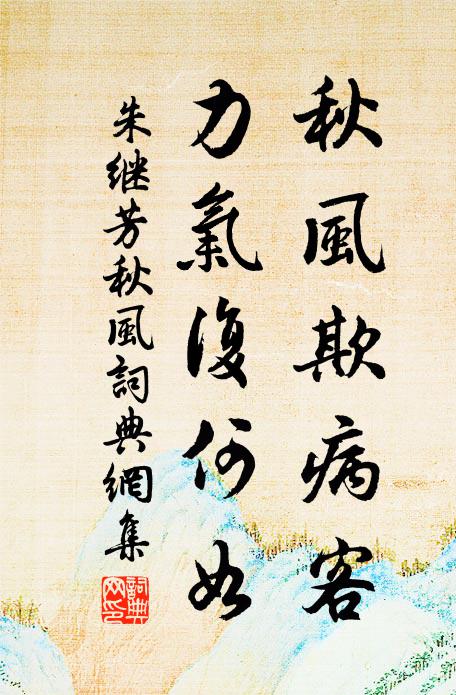 秋風欺病客
力氣復何如
朱继芳秋風詞典網集
詞典网印